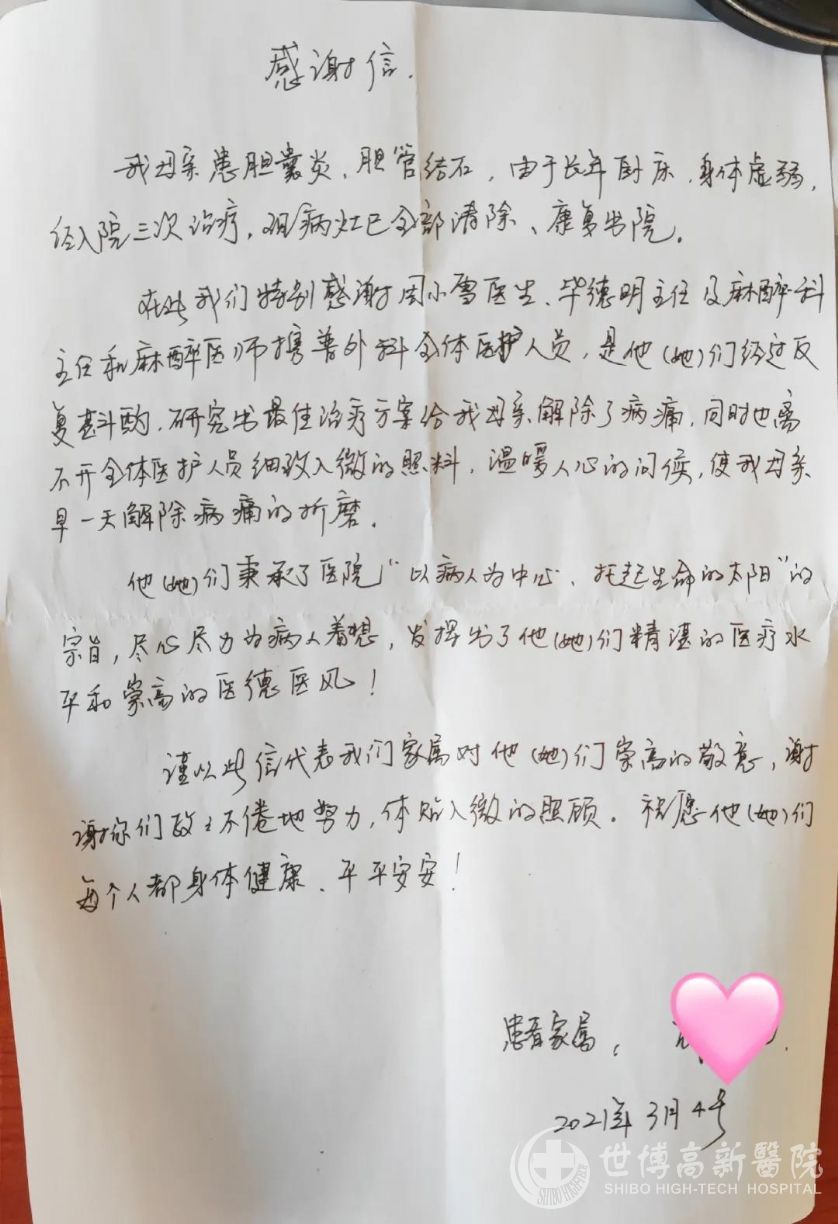 感谢信.
我母亲患胆囊炎、胆管结石，由于长年卧床，身体虚弱，
经入院三次治疗，现病灶已全部清除、康复出院。
在此我们特别感谢周小雪医生、毕德明主任及麻醉科
主任和麻醉医师携普外科全体医护人员，是他(她)们经过反
复斟酌，研究出最佳治疗方案给我母亲解除了病痛，同时也离
不开全体医护人员细致入微的照料，温暖人心的问候，使我母亲
早一天解除病痛的折磨。
他(她)们秉承了医院"以病人为中心、托起生命的太阳"的
宗旨，尽心尽力为病人着想，发挥出了他(她)们精湛的医疗水
平和崇高的医德医风！
谨以此信代表我们家属对他(她)们崇高的敬意，谢
谢你们孜孜不倦地努力，体贴入微的照顾。祝愿他(她)们
每个人都身体健康、平平安安！
患者家属：
2021年3月4号
世博高新醫院
SHIBO HIGH-TECH HOSPITAL